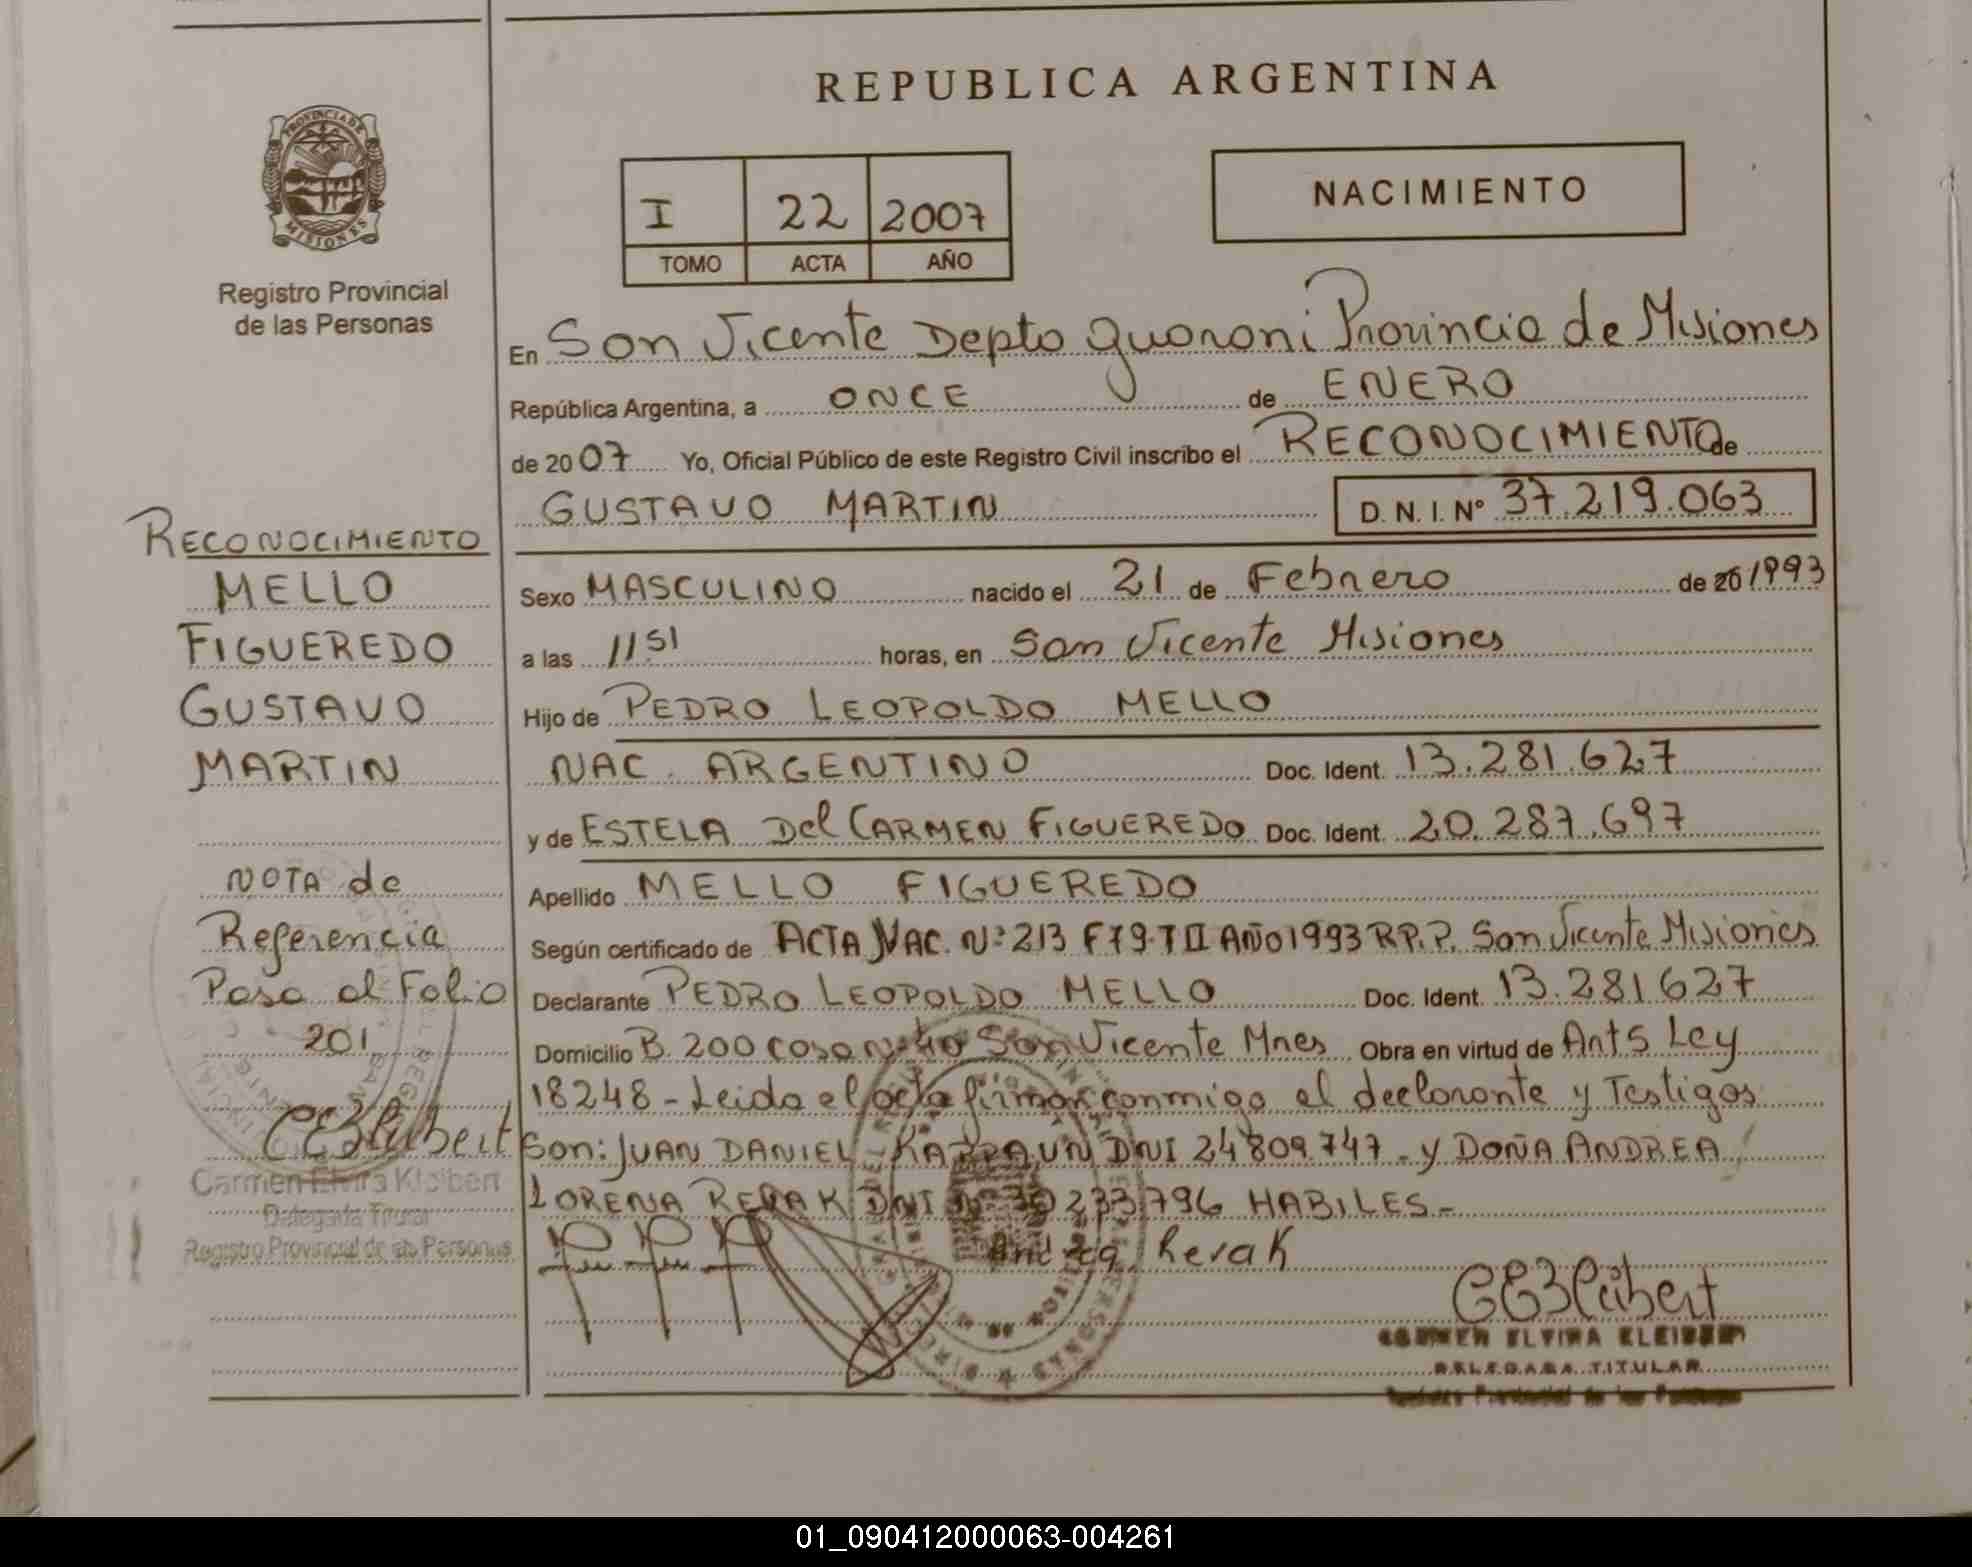 REPUBLICA ARGENTINA
PROVINCIA DE
MISIONES
Registro Provincial
de las Personas
I 22 2007
TOMO ACTA AÑO
NACIMIENTO
En San Vicente Depto Guarani Provincia de Misiones
República Argentina, a ONCE de ENERO
de 2007 Yo, Oficial Público de este Registro Civil inscribo el RECONOCIMIENTO de
GUSTAVO MARTIN D.N.I. Nº 37.219.063
Sexo MASCULINO nacido el 21 de Febrero de 20 1993
a las 11 51 horas, en San Vicente Misiones
Hijo de PEDRO LEOPOLDO MELLO
NAC. ARGENTINO Doc. Ident. 13.281.627
y de ESTELA Del CARMEN FIGUEREDO Doc. Ident. 20.287.697
Apellido MELLO FIGUEREDO
Según certificado de ACTA NAC. Nº 213 F79 T II AÑO 1993 R.P.P. San Vicente Misiones
Declarante PEDRO LEOPOLDO MELLO Doc. Ident. 13.281627
Domicilio B. 200 casa Nº San Vicente Mnes Obra en virtud de Art 5 Ley
18248 - Leida el acta firman conmigo el declarante y Testigos
Son: JUAN DANIEL DNI 24809.747 - y DOÑA ANDREA
LORENA RERAK DNI Nº 233796 HABILES -
Andrea Rerak
CEKleibert
CARMEN ELVIRA KLEIBERT
DELEGADA TITULAR
Registro Provincial de las Personas
RECONOCIMIENTO
MELLO
FIGUEREDO
GUSTAVO
MARTIN
NOTA de
Referencia
Pasa al Folio
201
CEKleibert
Carmen Elvira Kleibert
Delegada Titular
Registro Provincial de las Personas
01_090412000063-004261